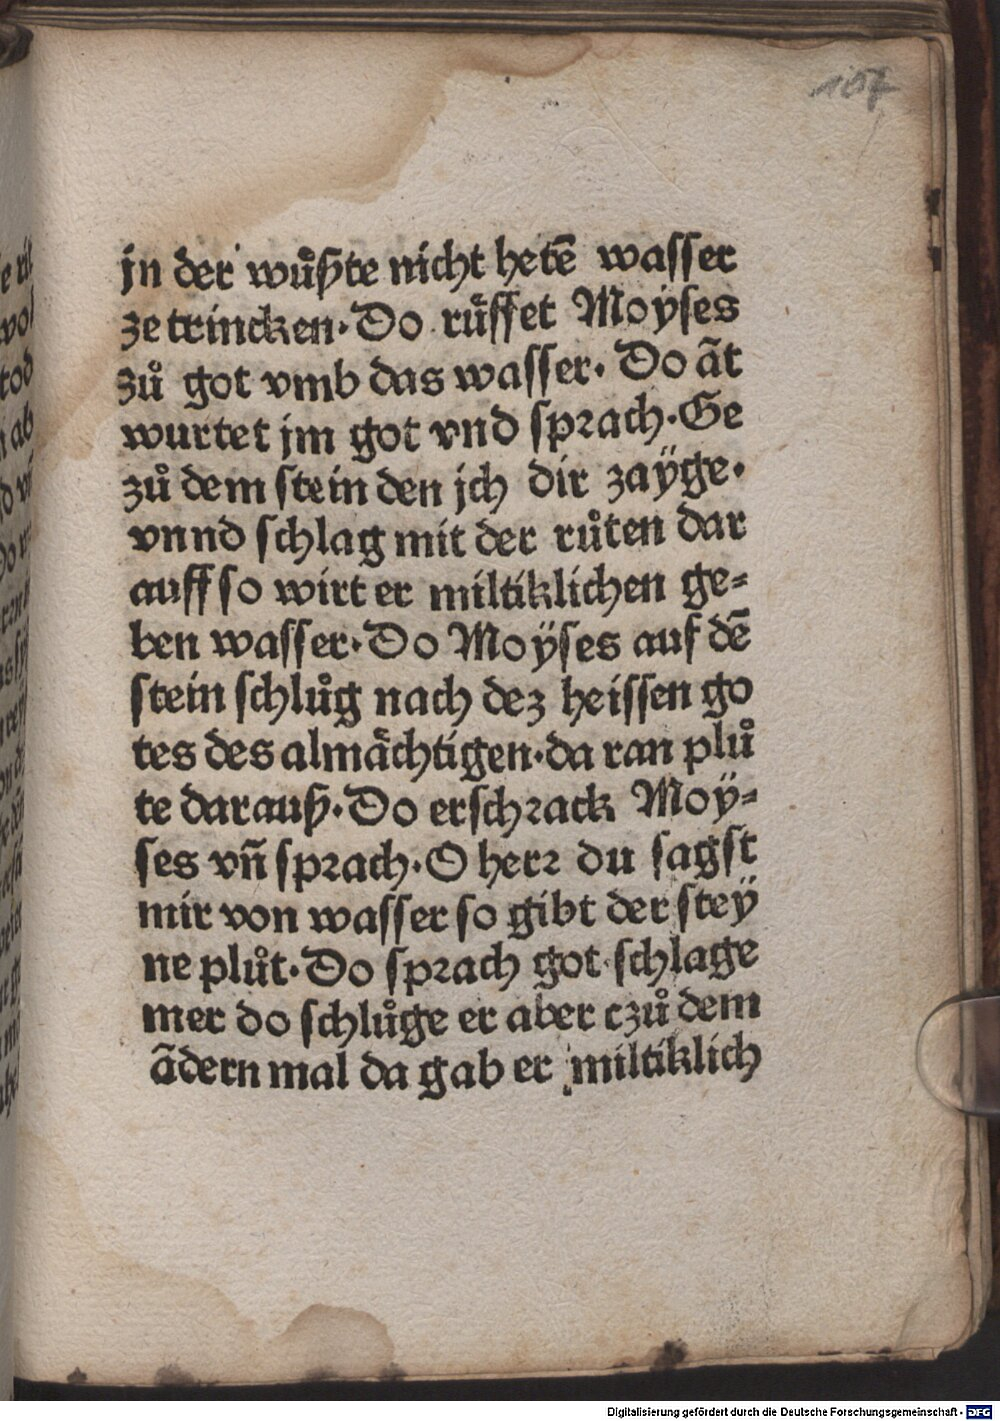 107
jn der wůſzte nicht hetē wasser
ze trincken. Do růffet Moÿses
zů got vmb das wasser. Do āt
wurtet jm got vnd sprach. Ge
zů dem stein den jch dir zaÿge.
vnnd schlag mit der růten dar
auff so wirt er miltiklichen ge=
ben wasser. Do Moÿses auf dē
stein schlůg nach dez heissen go
tes des almåchtigen. da ran plů
te darauſz. Do erschrack Moÿ=
ses vn̄ sprach. O herr du sagst
mir von wasser so gibt der steÿ
ne plůt. Do sprach got schlage
mer do schlůge er aber czů dem
ādern mal da gab er miltiklich
Digitalisierung gefördert durch die Deutsche Forschungsgemeinschaft - DFG